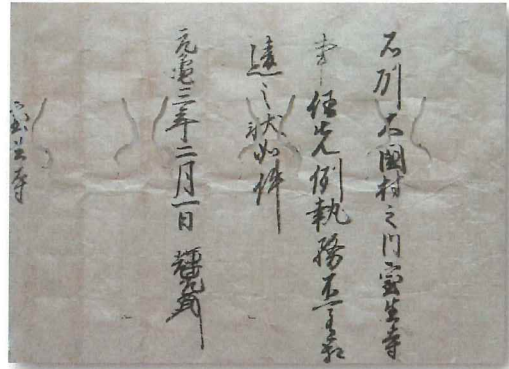 石州大国村之内宝生寺
事任先例執務不可有相
違之状如件
元亀三年二月一日 輝元
宝生寺